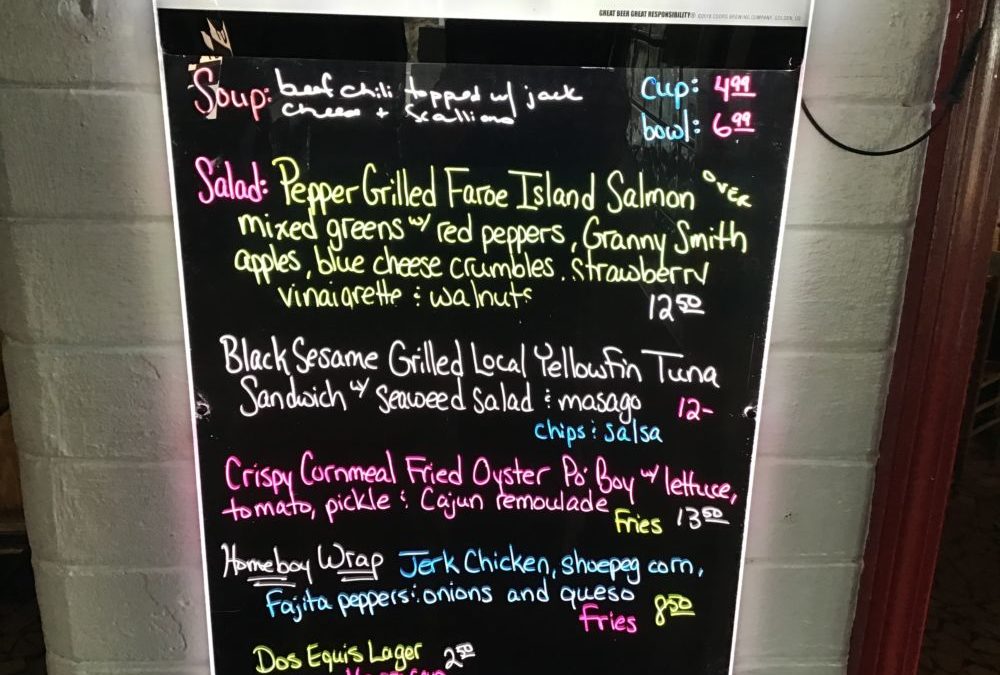 GREAT BEER GREAT RESPONSIBILITY® ©2018 COORS BREWING COMPANY, GOLDEN, CO
Soup: beef chili topped w/ jack
cheese + scallions
Cup: 4.99
bowl: 6.99
Salad: Pepper Grilled Faroe Island Salmon OVER
mixed greens w/ red peppers, Granny Smith
apples, blue cheese crumbles. strawberry
vinaigrette & walnuts
12.50
Black Sesame Grilled Local Yellowfin Tuna
Sandwich w/ seaweed salad & masago 12-
chips & salsa
Crispy Cornmeal Fried Oyster Po' Boy w/ lettuce,
tomato, pickle & Cajun remoulade
Fries 13.50
Homeboy Wrap Jerk Chicken, shoepeg corn,
Fajita peppers & onions and queso
Fries 8.50
Dos Equis Lager 2.50